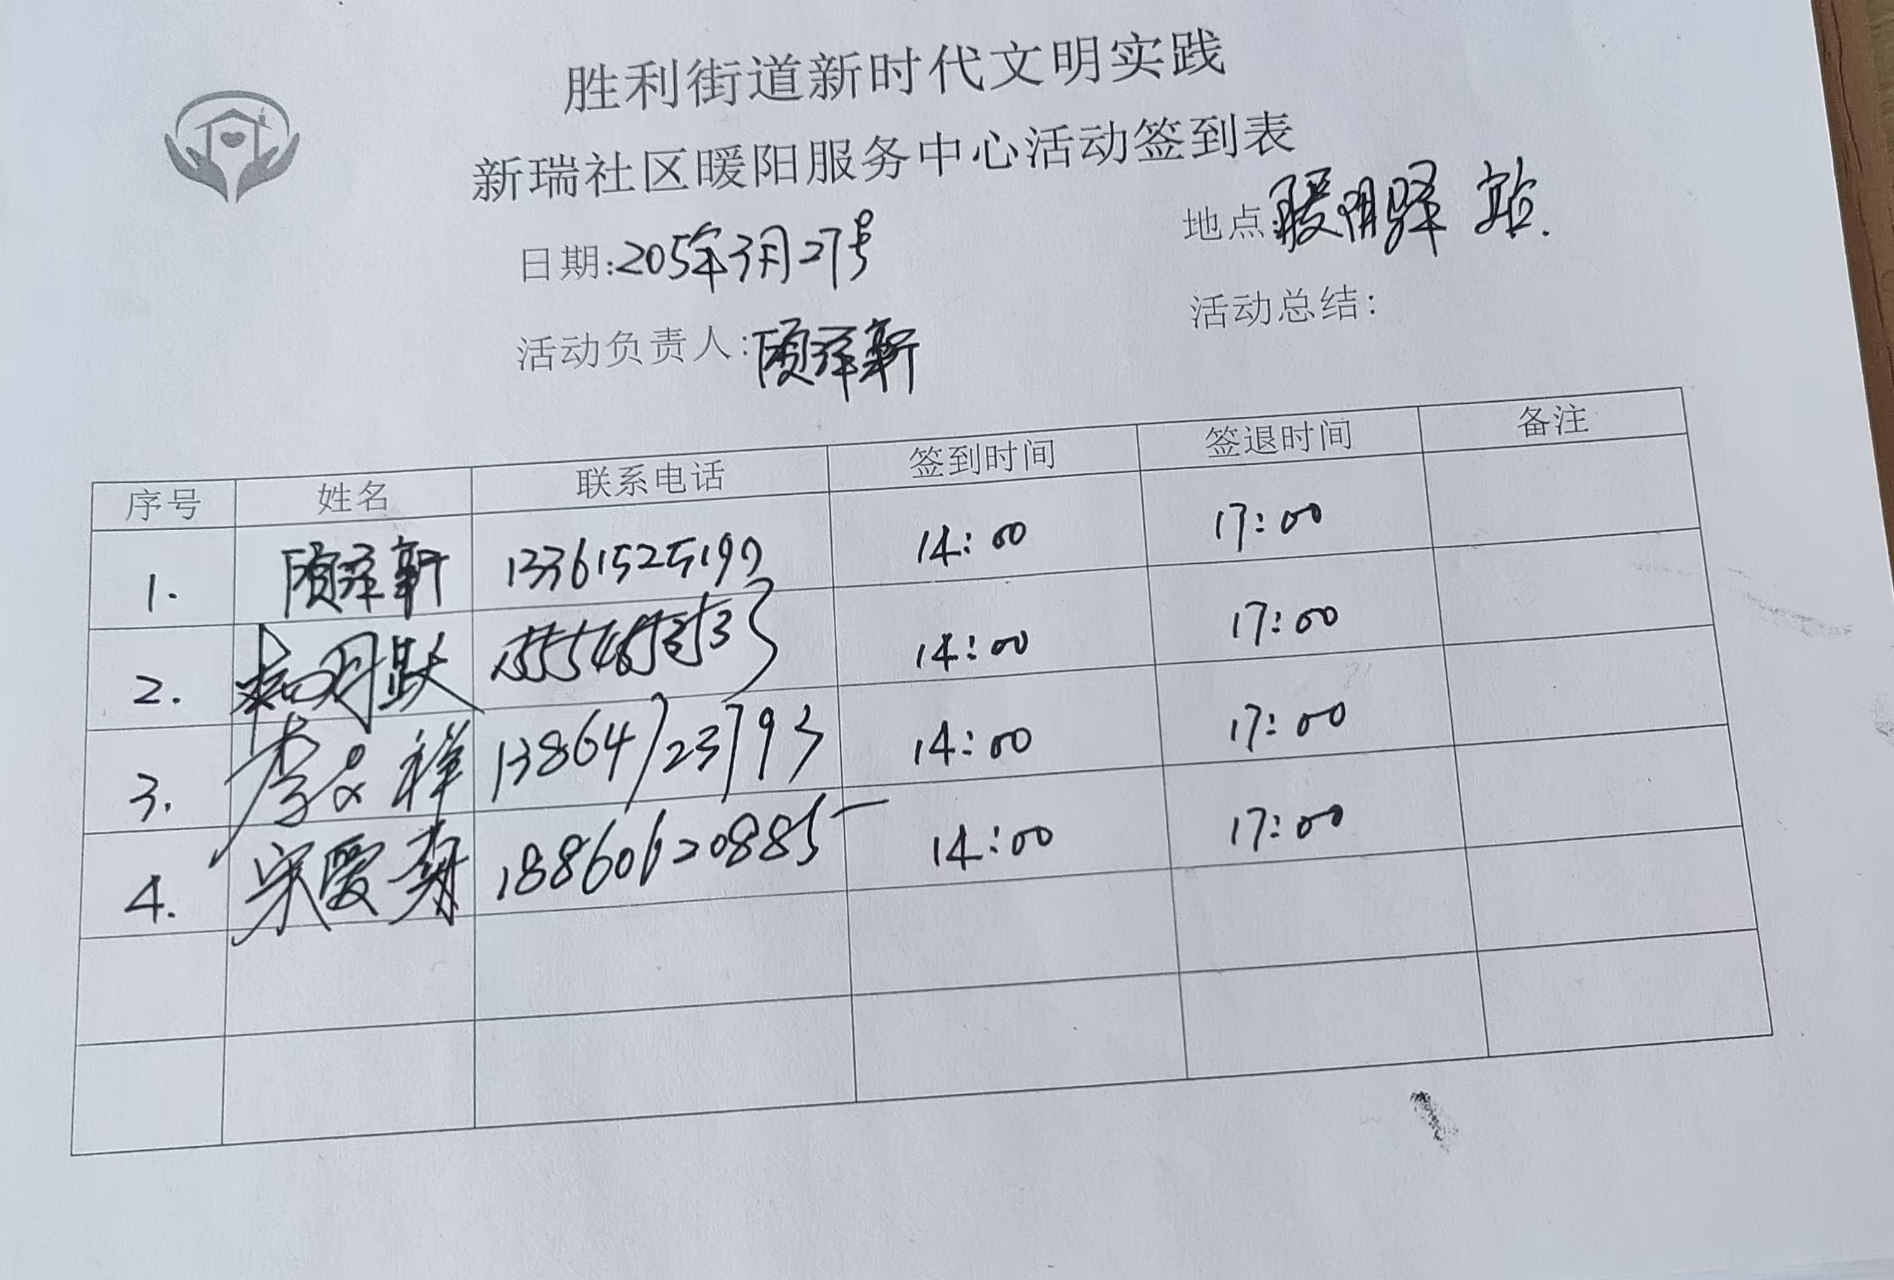 胜利街道新时代文明实践
新瑞社区暖阳服务中心活动签到表
日期:205年3月27号 地点:暖阳驿站.
活动负责人:顾泽新 活动总结:
序号 姓名 联系电话 签到时间 签退时间 备注
1. 顾泽新 13361525197 14:00 17:00
2. 14:00 17:00
3. 李文祥 13864723793 14:00 17:00
4. 宋爱 18860620885 14:00 17:00